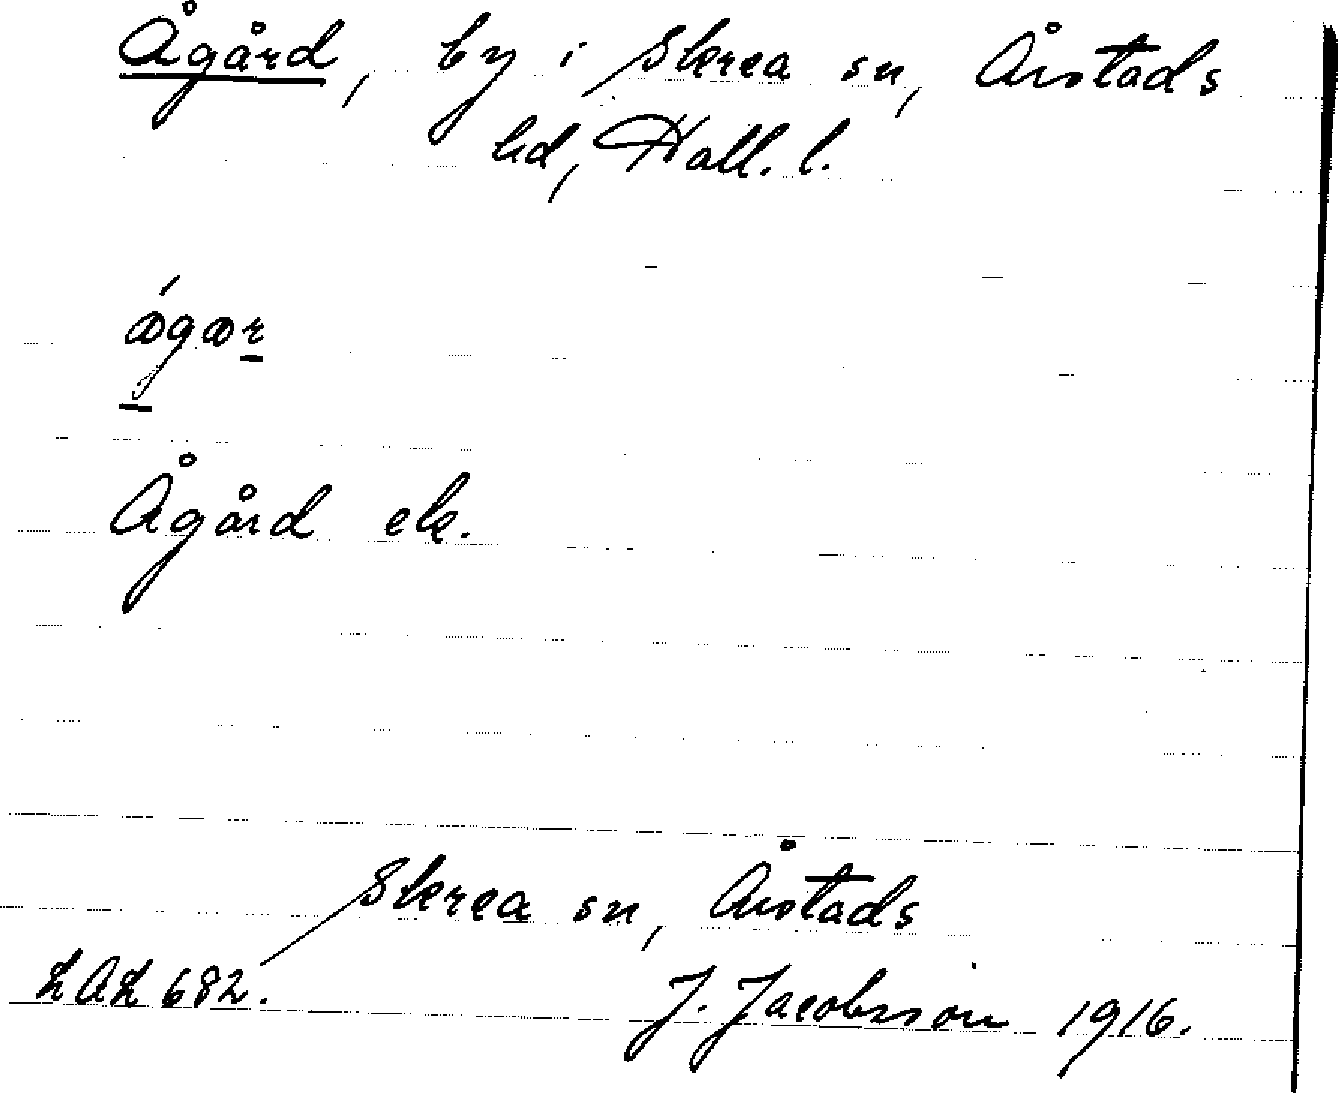 Ågård, by i Skrea sn, Årstads
hd, Hall. l.
ágær
Ågård ek.
Skrea sn, Årstads
LAL 682.
J. Jacobsson 1916.